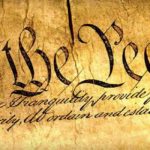 the Peo
Tranquility, provide
ordain and esta